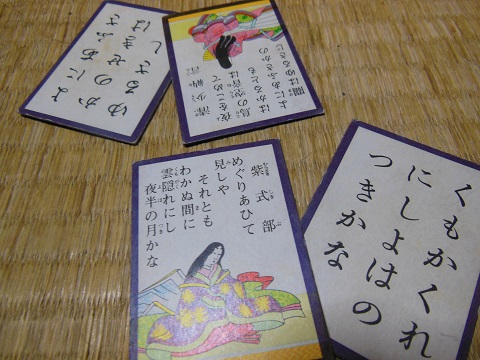 よにあふさ
かのせきは
ゆるさし
清少納言
夜をこめて
鳥の空音は
はかるとも
よにあふさかの
関はゆるさじ
紫式部
めぐりあひて
見しや
それとも
わかぬ間に
雲隠れにし
夜半の月かな
くもかくれ
にしよはの
つきかな